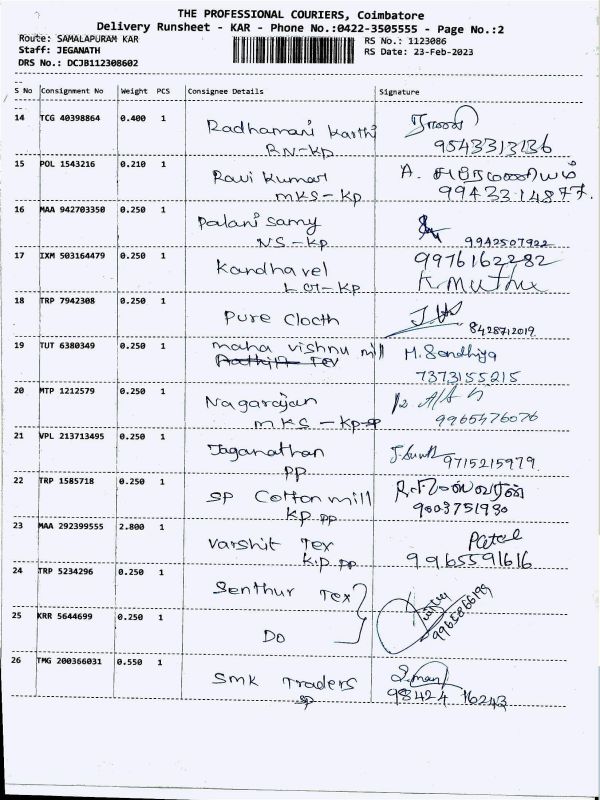 THE PROFESSIONAL COURIERS, Coimbatore
Delivery Runsheet - KAR - Phone No.:0422-3505555 - Page No.:2
Route: SAMALAPURAM KAR
RS No.: 1123086
Staff: JEGANATH
RS Date: 23-Feb-2023
DRS No.: DCJB112308602
S No Consignment No Weight PCS Consignee Details Signature
14 TCG 40398864 0.400 1 Radhamani Karthi
RN-KP 9543313136
15 POL 1543216 0.210 1 Ravi Kumar A. சுப்ரமணியம்
MKS-KP 9943314877.
16 MAA 942703350 0.250 1 Palani Samy
NS-KP 9942507922
17 IXM 503164479 0.250 1 Kandhavel 9976162282
KP K. Muthu
18 TRP 7942308 0.250 1 Pure Clocth
8428712019
19 TUT 6380349 0.250 1 maha vishnu mill M. Sandhiya
7373155215
20 MTP 1212579 0.250 1 Nagarajan
MKS-KP 9965476076
21 VPL 213713495 0.250 1 Jaganathan 9715215979
PP
22 TRP 1585718 0.250 1 SP Cotton mill
KP PP 9003751980
23 MAA 292399555 2.800 1 Varshit Tex Patel
K.P. PP 9965591616
24 TRP 5234296 0.250 1 Senthur Tex
25 KRR 5644699 0.250 1 Do
26 TMG 200366031 0.550 1 SMK Traders S. Mani
SP 98424 16243